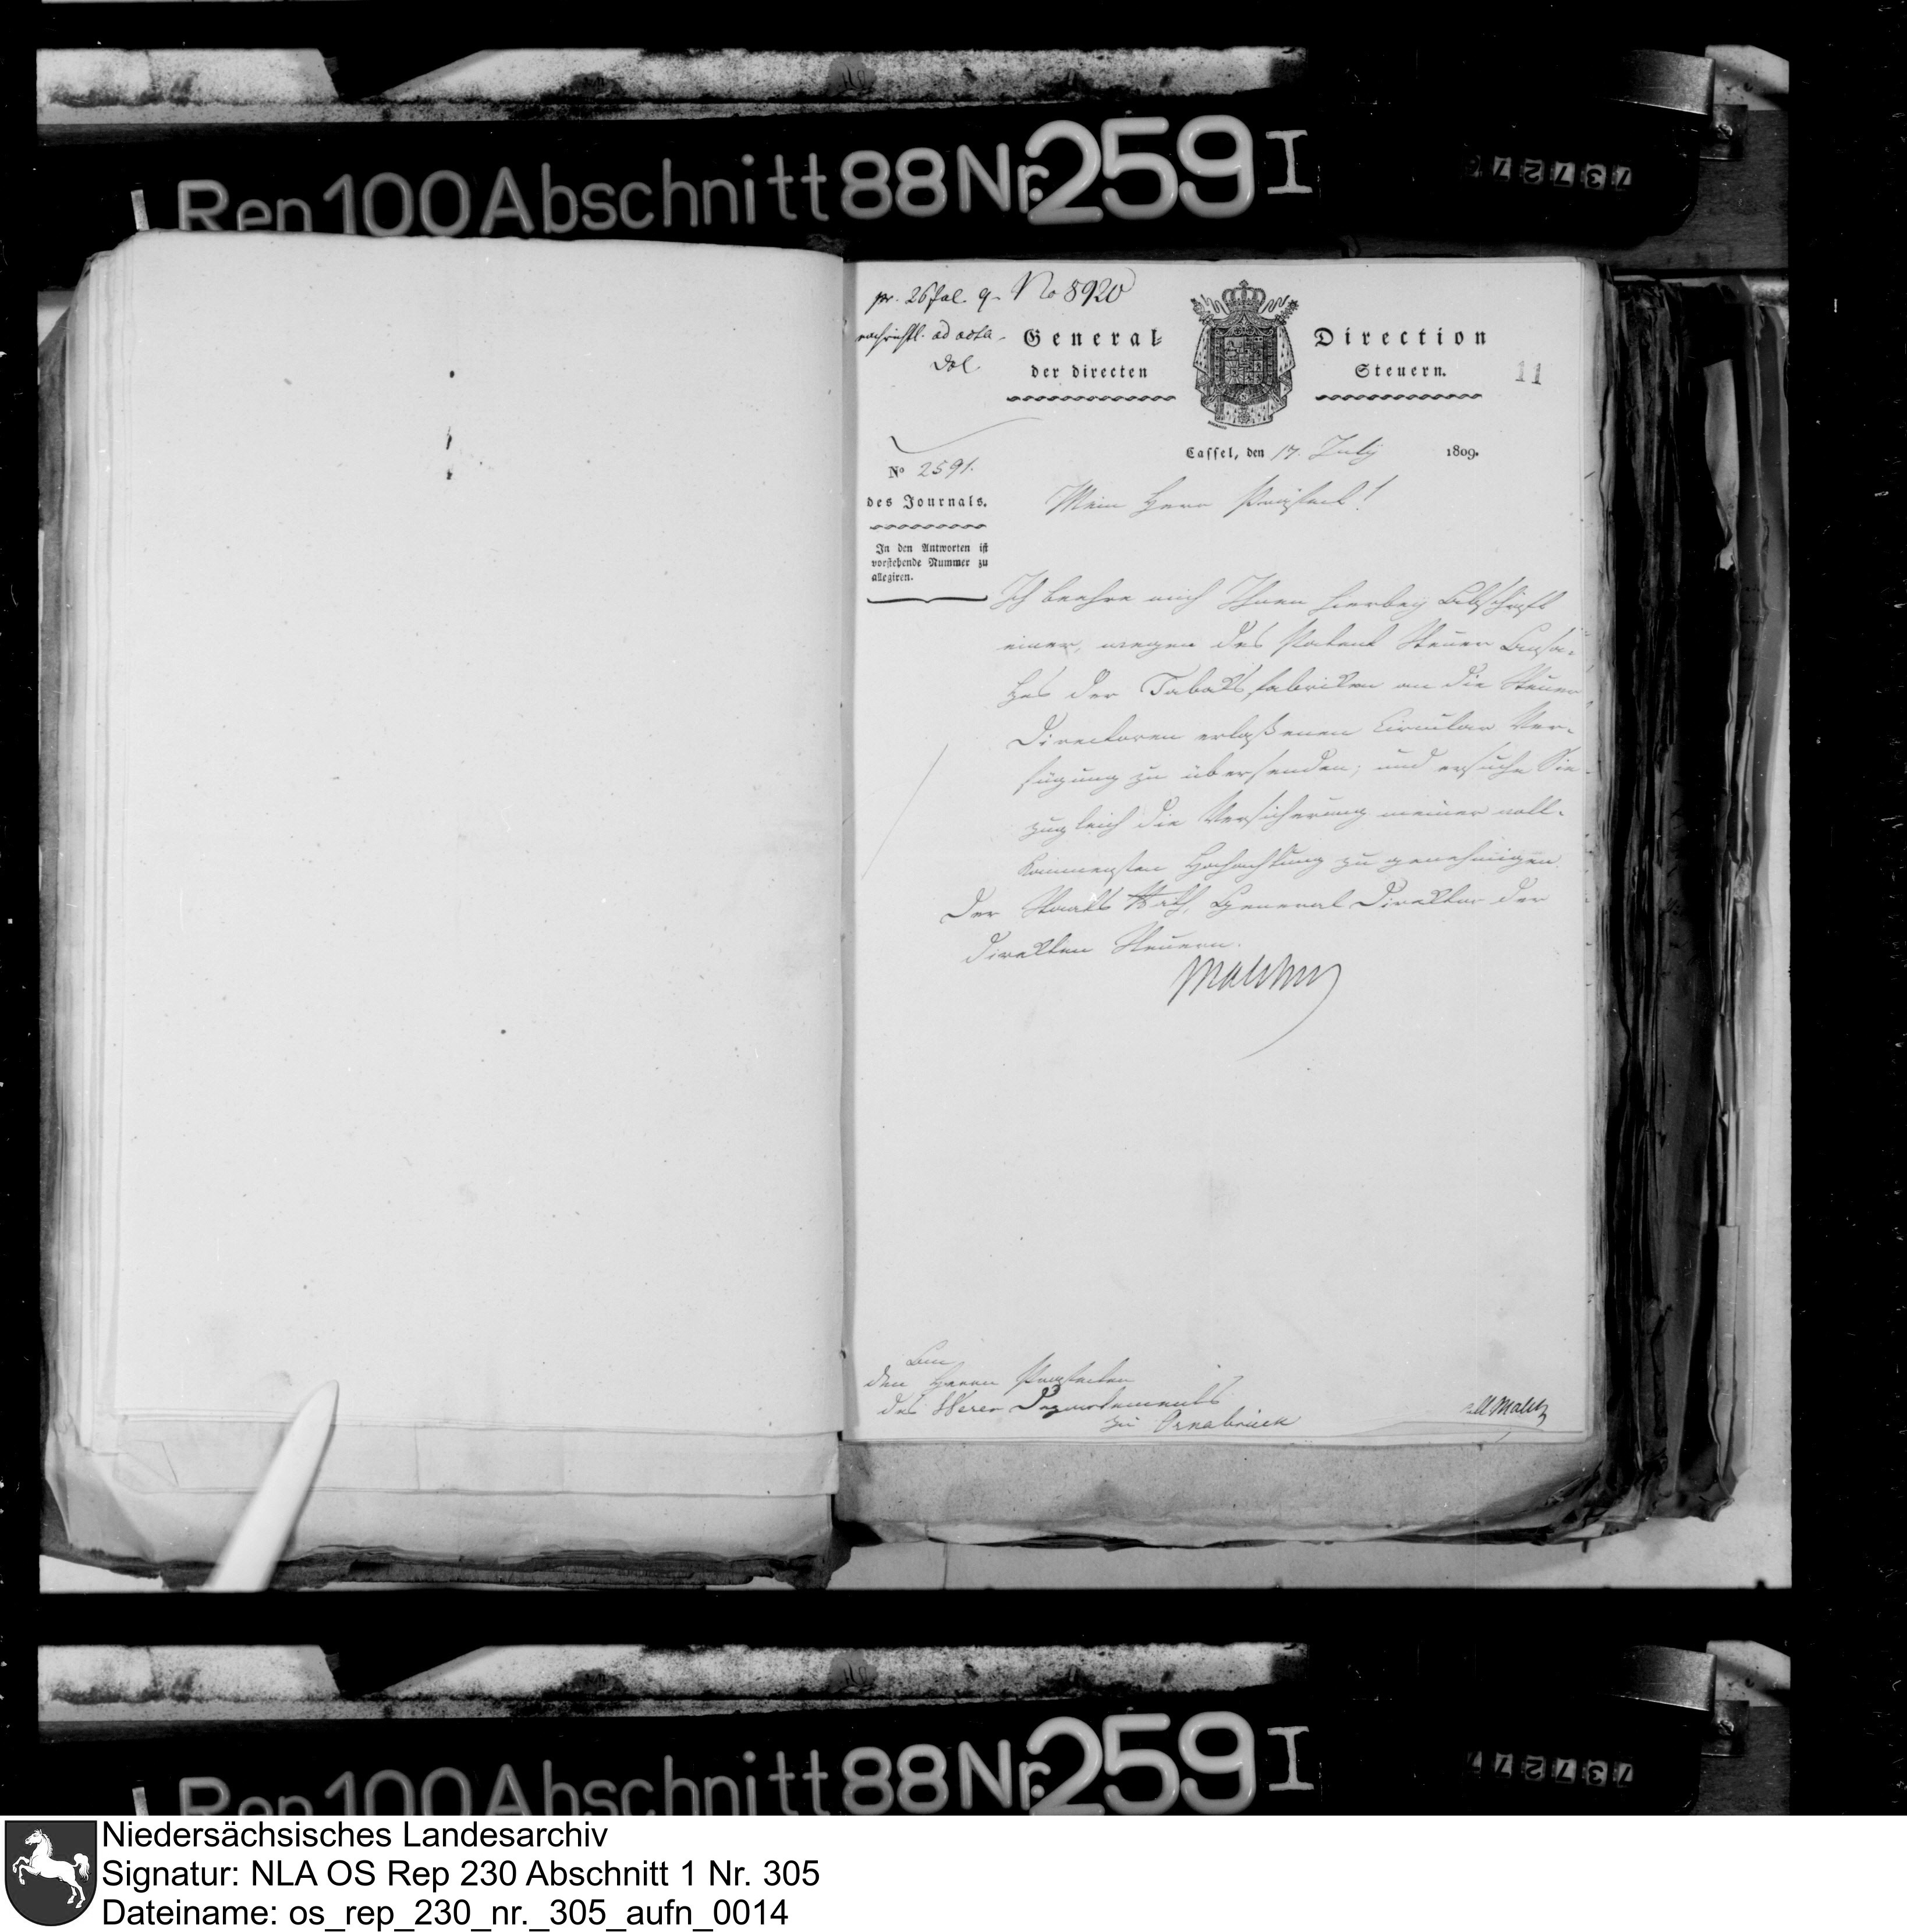 Rep 100 Abschnitt 88 Nr. 259 I
pr. 26 Jul. 9. No 8920
ad acta
General- Direction
der directen Steuern.
11
Cassel, den 17. July 1809.
No 2591.
des Journals.
In den Antworten ist
vorstehende Nummer zu
allegiren.
Mein Herr Präfect!
Ich beehre mich Ihnen hierbey Abschrift
einer, wegen des Patent Steuer Ansa-
tzes der Tabaksfabriken an die Steuer
Directoren erlaßenen Circular Ver-
fügung zu übersenden; und ersuche Sie
zugleich die Versicherung meiner voll-
kommensten Hochachtung zu genehmigen.
Der Staats Rath, General Direktor der
direkten Steuern.
Malchus
An
den Herrn Praefecten
des Weser Departements
zu Osnabrück
Rep 100 Abschnitt 88 Nr. 259 I
Niedersächsisches Landesarchiv
Signatur: NLA OS Rep 230 Abschnitt 1 Nr. 305
Dateiname: os_rep_230_nr._305_aufn_0014